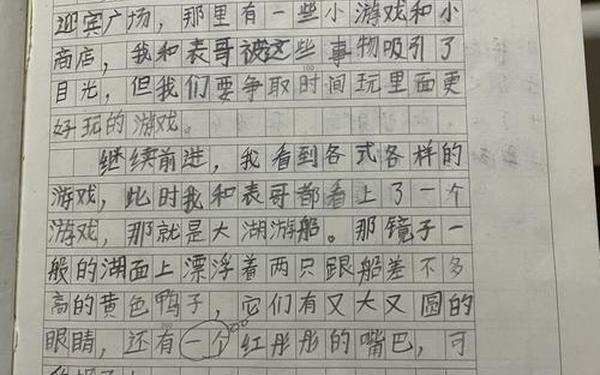 迎宾广场，那里有一些小游戏和小
商店，我和表哥被这些事物吸引了
目光，但我们要争取时间玩里面更
好玩的游戏。
继续前进，我看到各式各样的
游戏，此时我和表哥都看上了一个
游戏，那就是大湖游船。那镜子一
般的湖面上漂浮着两只跟船差不多
高的黄色鸭子，它们有又大又圆的
眼睛，还有一个红彤彤的嘴巴，可